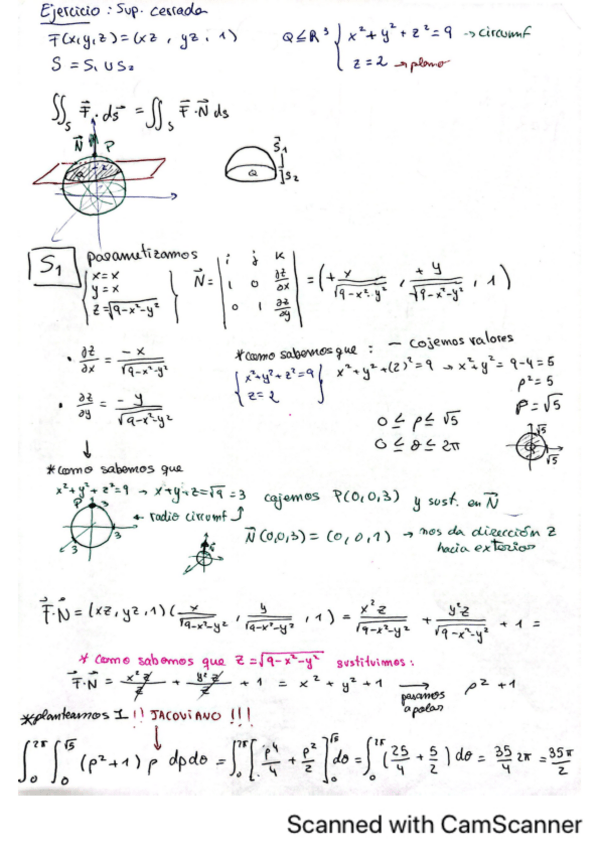 Ejercicio : Sup. cerrada
F(x,y,z)=(xz , yz , 1)
Q≤R³ { x²+y²+z²=9 → circumf
S = S₁ ∪ S₂
z=2 → plano
∬_S F⃗ · ds⃗ = ∬_S F⃗ · N⃗ ds
N⃗ P
Q
S₁
S₂
Q
S₁
parametizamos
{ x=x
y=y
z=√9-x²-y² }
N⃗ = | i j k
1 0 ∂z/∂x
0 1 ∂z/∂y | = (+x/√9-x²-y² , +y/√9-x²-y² , 1)
• ∂z/∂x = -x/√9-x²-y²
• ∂z/∂y = -y/√9-x²-y²
*como sabemos que : - cojemos valores
{ x²+y²+z²=9
z=2 } x²+y²+(2)²=9 → x²+y²= 9-4=5
ρ²=5
ρ=√5
0 ≤ ρ ≤ √5
0 ≤ θ ≤ 2π
√5
√5
*como sabemos que
x²+y²+z²=9 → x+y+z=√9=3 cojemos P(0,0,3) y sust. en N⃗
P 3
← radio circumf
3
3
N⃗(0,0,3)=(0,0,1) → nos da dirección z
hacia exterior
F⃗·N⃗ = (xz, yz, 1)(x/√9-x²-y² , y/√9-x²-y² , 1) = x²z/√9-x²-y² + y²z/√9-x²-y² + 1 =
* como sabemos que z=√9-x²-y² sustituimos:
F⃗·N⃗ = x²z/z + y²z/z + 1 = x²+y²+1 → pasamos a polar ρ²+1
*planteamos I !! JACOVIANO !!!
∫₀^2π ∫₀^√5 (ρ²+1) ρ dρdθ = ∫₀^2π [ρ⁴/4 + ρ²/2]₀^√5 dθ = ∫₀^2π (25/4 + 5/2) dθ = 35/4 2π = 35π/2
Scanned with CamScanner